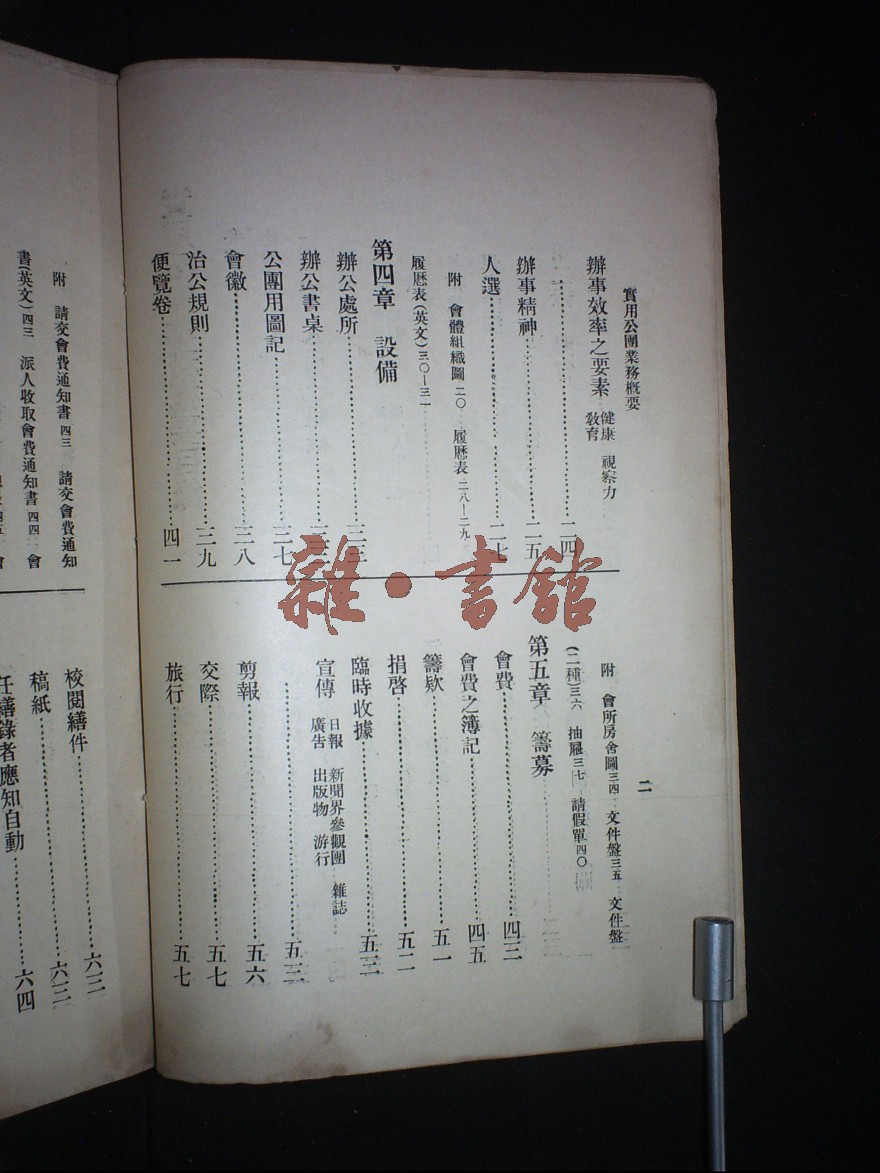 實用公團業務概要
二
辦事效率之要素 健康 視察力
教育
二四
辦事精神 二五
人選 二七
附 會體組織圖二〇 履歷表二八—二九
履歷表(英文)三〇—三一
第四章 設備
辦公處所 三三
辦公書桌
公團用圖記 三七
會徽 三八
治公規則 三九
便覽卷 四一
附 會所房舍圖三四 文件盤三五 文件盤
(二種)三六 抽屜三七 請假單四〇
第五章 籌募
會費 四三
會費之簿記 四五
籌欵 五一
捐啓 五二
臨時收據 五三
宣傳 日報 新聞界參觀團 雜誌
廣告 出版物 游行
五三
剪報 五六
交際 五七
旅行 五七
附 請交會費通知書四三 請交會費通知
書(英文)四三 派人收取會費通知書四四 會
校閱繕件 六三
稿紙 六三
任繕錄者應知自動 六四
雜·書館